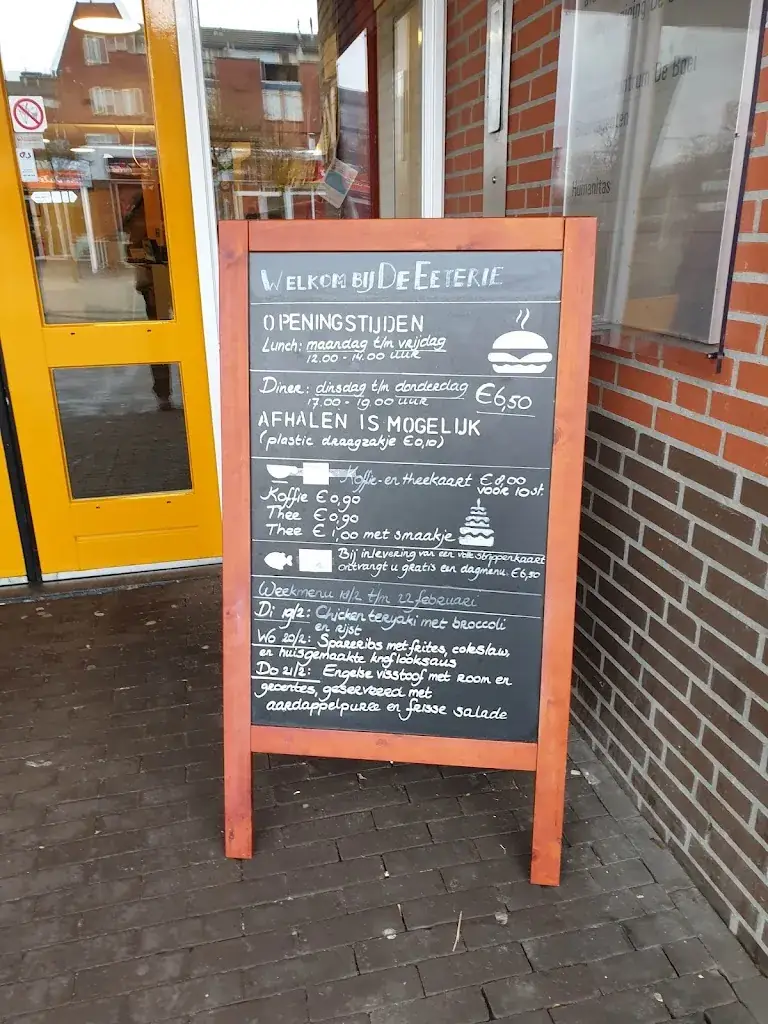 WELKOM BIJ DE EETERIE
OPENINGSTIJDEN
Lunch: maandag t/m vrijdag
12.00 - 14.00 uur
Diner: dinsdag t/m donderdag
17.00 - 19.00 uur
€6,50
AFHALEN IS MOGELIJK
(plastic draagzakje €0,10)
Koffie- en theekaart €8,00
voor 10 st.
Koffie €0,90
Thee €0,90
Thee €1,00 met smaakje
Bij inlevering van een volle strippenkaart
ontvangt u gratis een dagmenu. €6,50
Weekmenu 18/2 t/m 22 februari
Di 19/2: Chicken teryaki met broccoli
en rijst
Wo 20/2: Spareribs met frites, coleslaw,
en huisgemaakte knoflooksaus
Do 21/2: Engelse visstoof met room en
groentes, geserveerd met
aardappelpuree en frisse salade
De Boei
Humanitas